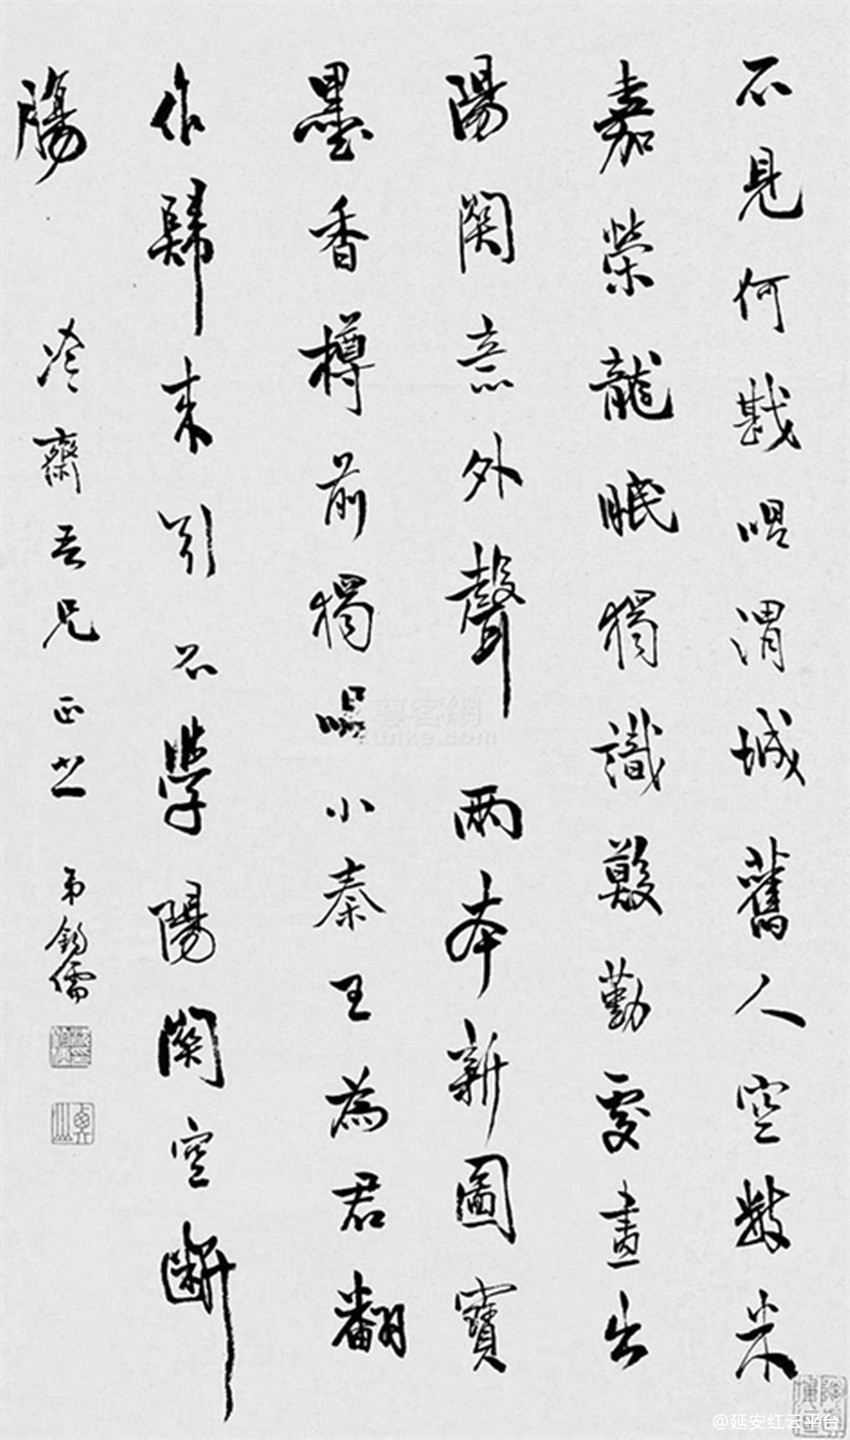 不見何戡唱渭城舊人空數米
嘉榮龍眠獨識殷勤處畫出
陽關意外聲 兩本新圖寶
墨香樽前獨唱小秦王為君翻
作歸來引不學陽關空斷
腸 冷齋吾兄正之 弟鈞儒
@延安红云平台